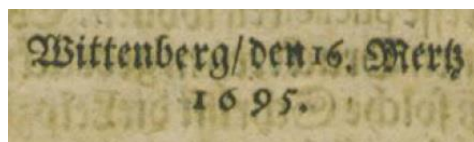 Wittenberg/den 16. Mertz
1695.